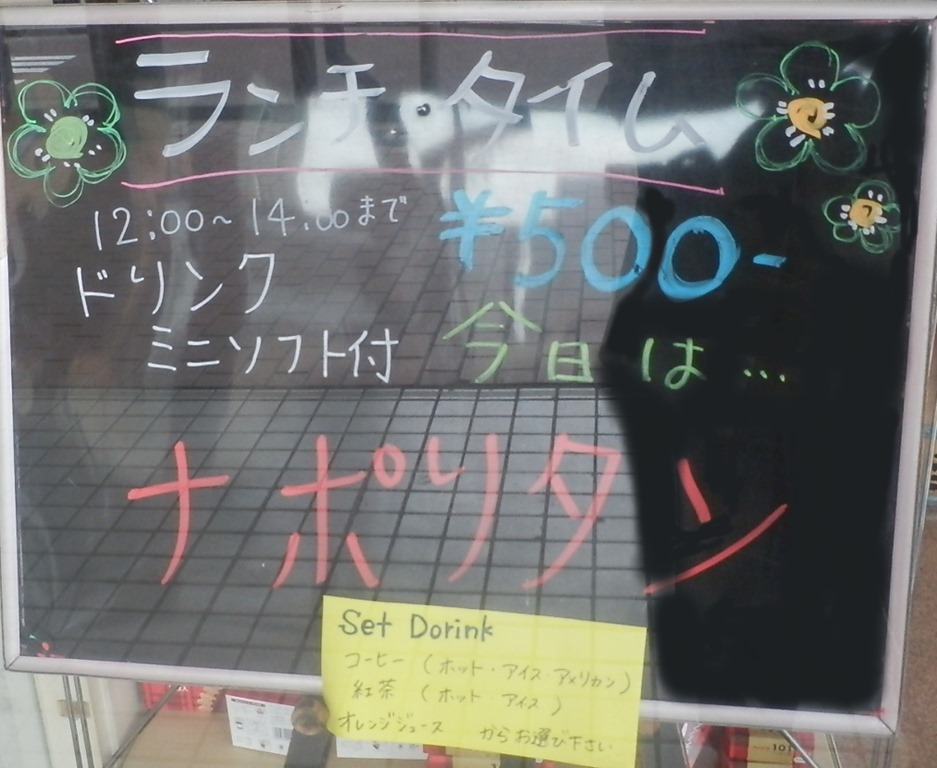 ランチ・タイム
12:00~14:00まで
¥500-
ドリンク
ミニソフト付
今日は…
ナポリタン
Set Dorink
コーヒー (ホット・アイス・アメリカン)
紅茶 (ホット アイス)
オレンジジュース からお選び下さい